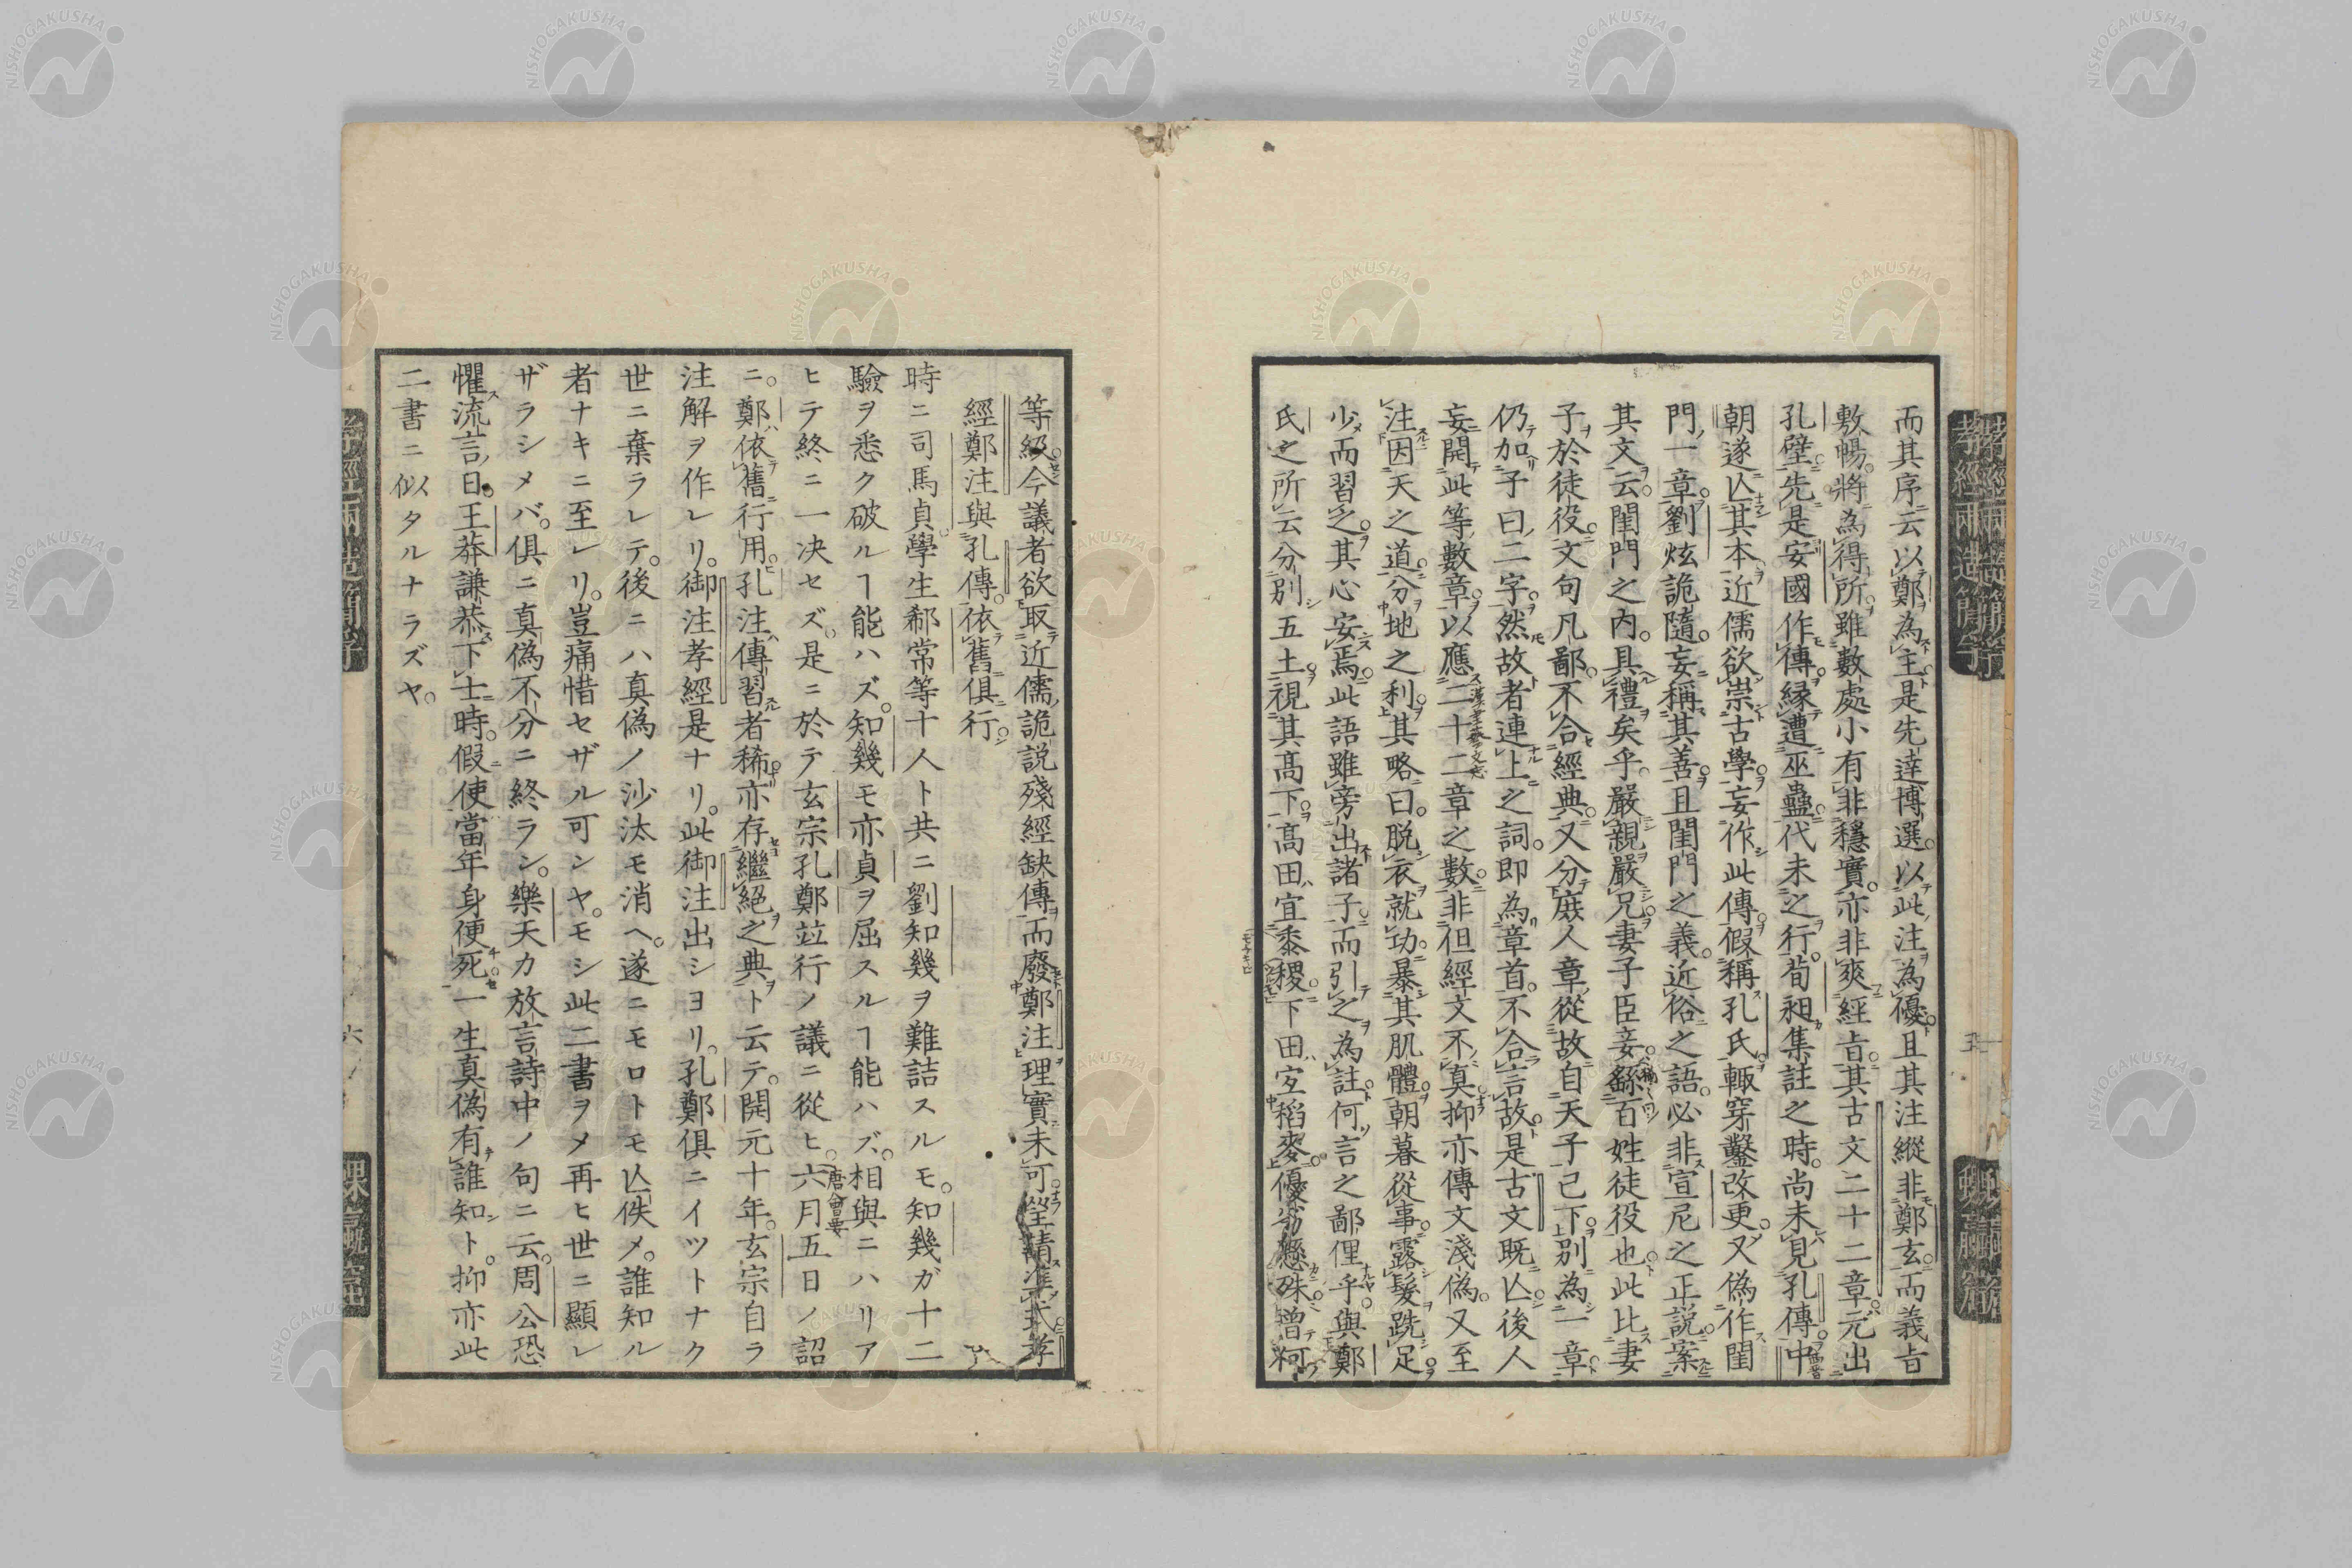 而其序云以鄭為主是先達博選以此注為優且其注縱非鄭玄而義旨
敷暢將為得所雖數處小有非穩實亦非爽經旨其古文二十二章元出
孔壁先是安國作傳縁遭巫蠱代未之行荀昶集註之時尚未見孔傳中
朝遂亾其本近儒欲崇古學妄作此傳假稱孔氏輙穿鑿改更又偽作閨
門一章劉炫詭隨妄稱其善且閨門之義近俗之語必非宣尼之正説案
其文云閨門之内具禮矣乎嚴親嚴兄妻子臣妾繇百姓徒役也此比妻
子於徒役文句凡鄙不合經典又分庶人章從故自天子已下別為一章
仍加子曰二字然故者連上之詞即為章首不合言故是古文既亾後人
妄開此等數章以應二十二章之數非但經文不真抑亦傳文淺偽又至
注因天之道分地之利其略曰脱衣就功暴其肌體朝暮從事露髮跣足
少而習之其心安焉此語雖旁出諸子而引之為註何言之鄙俚乎與鄭
氏之所云分別五土視其高下高田宜黍稷下田宜稻麥優劣懸殊曽何
等級今議者欲取近儒詭説殘經缺傳而廢鄭注理實未可請準式孝
經鄭注與孔傳依舊俱行
時ニ司馬貞學生郗常等十人ト共ニ劉知幾ヲ難詰スルモ知幾ガ十二
驗ヲ悉ク破ルヿ能ハズ知幾モ亦貞ヲ屈スルヿ能ハズ相與ニハリア
ヒテ終ニ一決セズ是ニ於テ玄宗孔鄭竝行ノ議ニ從ヒ唐會要六月五日ノ詔
ニ鄭依舊行用孔注傳習者稀亦存繼絕之典ト云テ開元十年玄宗自ラ
注解ヲ作レリ御注孝經是ナリ此御注出シヨリ孔鄭俱ニイツトナク
世ニ棄ラレテ後ニハ真偽ノ沙汰モ消ヘ遂ニモロトモ亾佚メ誰知ル
者ナキニ至レリ豈痛惜セザル可ンヤモシ此二書ヲメ再ヒ世ニ顯レ
ザラシメバ俱ニ真偽不分ニ終ラン樂天カ放言詩中ノ句ニ云周公恐
懼流言日王莽謙恭下士時假使當年身便死一生真偽有誰知ト抑亦此
二書ニ似タルナラズヤ